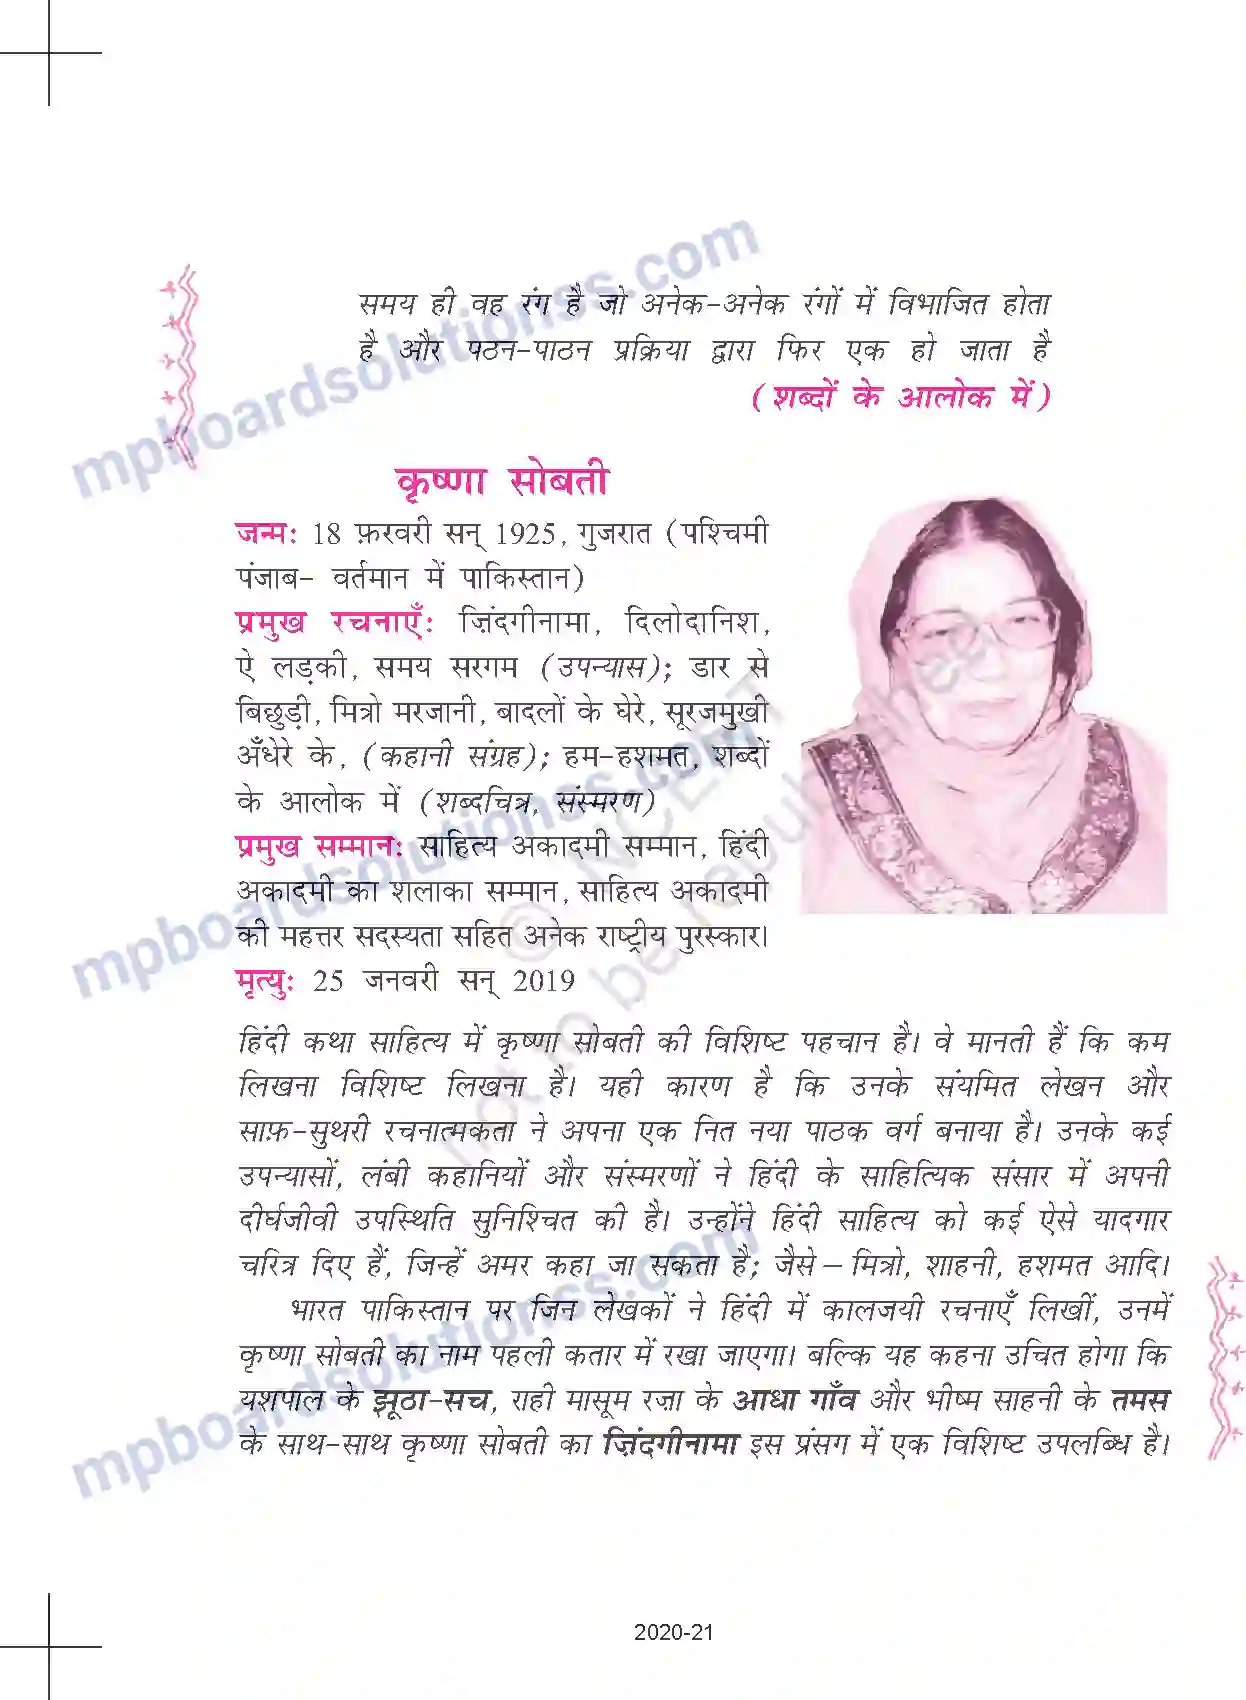 समय ही वह रंग है जो अनेक-अनेक रंगों में विभाजित होता
है और पठन-पाठन प्रक्रिया द्वारा फिर एक हो जाता है
(शब्दों के आलोक में)
कृष्णा सोबती
जन्मः 18 फ़रवरी सन् 1925, गुजरात (पश्चिमी
पंजाब- वर्तमान में पाकिस्तान)
प्रमुख रचनाएँः ज़िंदगीनामा, दिलोदानिश,
ऐ लड़की, समय सरगम (उपन्यास); डार से
बिछुड़ी, मित्रो मरजानी, बादलों के घेरे, सूरजमुखी
अँधेरे के, (कहानी संग्रह); हम-हशमत, शब्दों
के आलोक में (शब्दचित्र, संस्मरण)
प्रमुख सम्मानः साहित्य अकादमी सम्मान, हिंदी
अकादमी का शलाका सम्मान, साहित्य अकादमी
की महत्तर सदस्यता सहित अनेक राष्ट्रीय पुरस्कार।
मृत्युः 25 जनवरी सन् 2019
हिंदी कथा साहित्य में कृष्णा सोबती की विशिष्ट पहचान है। वे मानती हैं कि कम
लिखना विशिष्ट लिखना है। यही कारण है कि उनके संयमित लेखन और
साफ़-सुथरी रचनात्मकता ने अपना एक नित नया पाठक वर्ग बनाया है। उनके कई
उपन्यासों, लंबी कहानियों और संस्मरणों ने हिंदी के साहित्यिक संसार में अपनी
दीर्घजीवी उपस्थिति सुनिश्चित की है। उन्होंने हिंदी साहित्य को कई ऐसे यादगार
चरित्र दिए हैं, जिन्हें अमर कहा जा सकता है; जैसे – मित्रो, शाहनी, हशमत आदि।
भारत पाकिस्तान पर जिन लेखकों ने हिंदी में कालजयी रचनाएँ लिखीं, उनमें
कृष्णा सोबती का नाम पहली कतार में रखा जाएगा। बल्कि यह कहना उचित होगा कि
यशपाल के झूठा-सच, राही मासूम रजा के आधा गाँव और भीष्म साहनी के तमस
के साथ-साथ कृष्णा सोबती का ज़िंदगीनामा इस प्रसंग में एक विशिष्ट उपलब्धि है।
2020-21
mpboardsolutionss.com
mpboardsolutionss.com
mpboardsolutionss.com
© NCERT
not to be republished